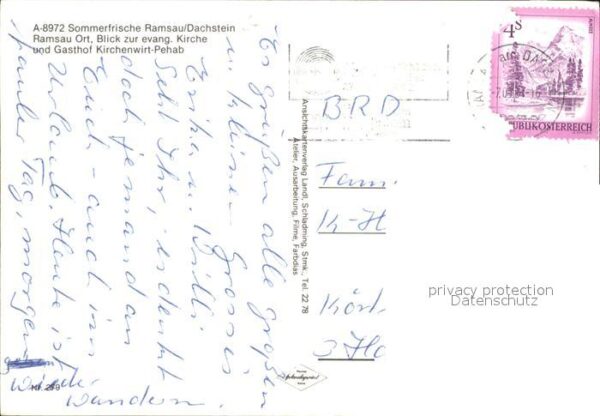 A-8972 Sommerfrische Ramsau/Dachstein
Ramsau Ort, Blick zur evang. Kirche
und Gasthof Kirchenwirt-Pehab
Es grüßen alle großen
u. kleinen Grossis
Erika u. Willi
Seht Ihr, es denkt
doch jemand an
Euch - auch im
Urlaub. Heute ist
fauler Tag, morgen
wieder
wandern.
Nr. 259
Ansichtskartenverlag Landl, Schladming, Stmk., Tel. 22 78
Atelier, Ausarbeitung, Filme, Farbdias
4 S
REPUBLIK ÖSTERREICH
BRD
Fam.
K-H
Körl
3 Ha
privacy protection
Datenschutz